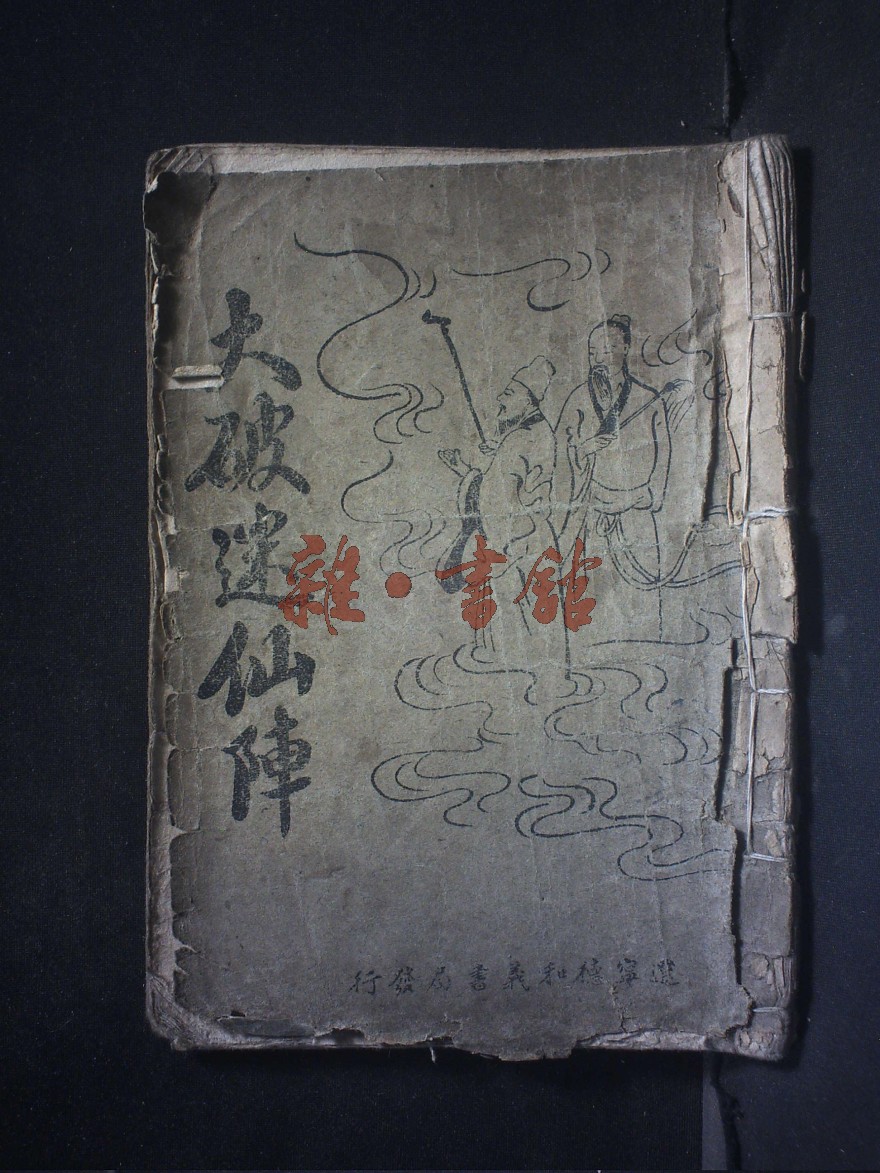 大破迷仙陣
雜·書舘
遼寧德和義書局發行